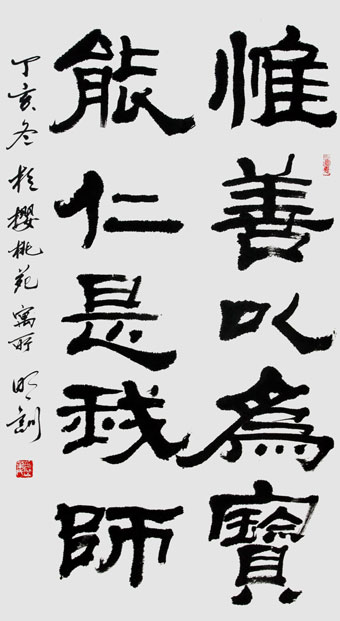 惟善以為寶
能仁是我師
丁亥冬於櫻桃苑寓所